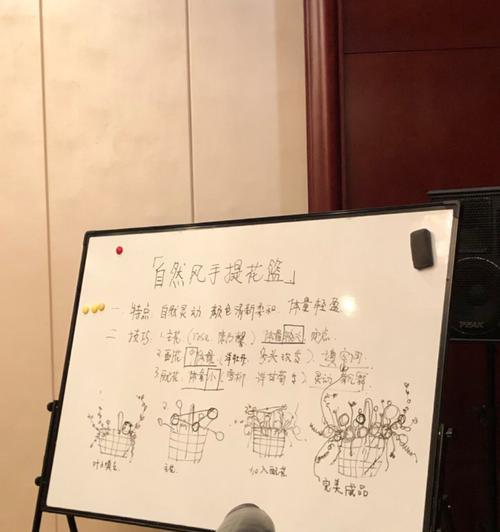 「自然风手提花篮」
一、特点 自然灵动 颜色清新柔和 体量轻盈
二、技巧 1.主花(rose 体量 对应
2.配花 体量 洋牡丹 多头玫瑰)填空间
3.配花 体量小 洋甘菊 灵动
叶材填充
主花
加入配花
完美成品
PEAK